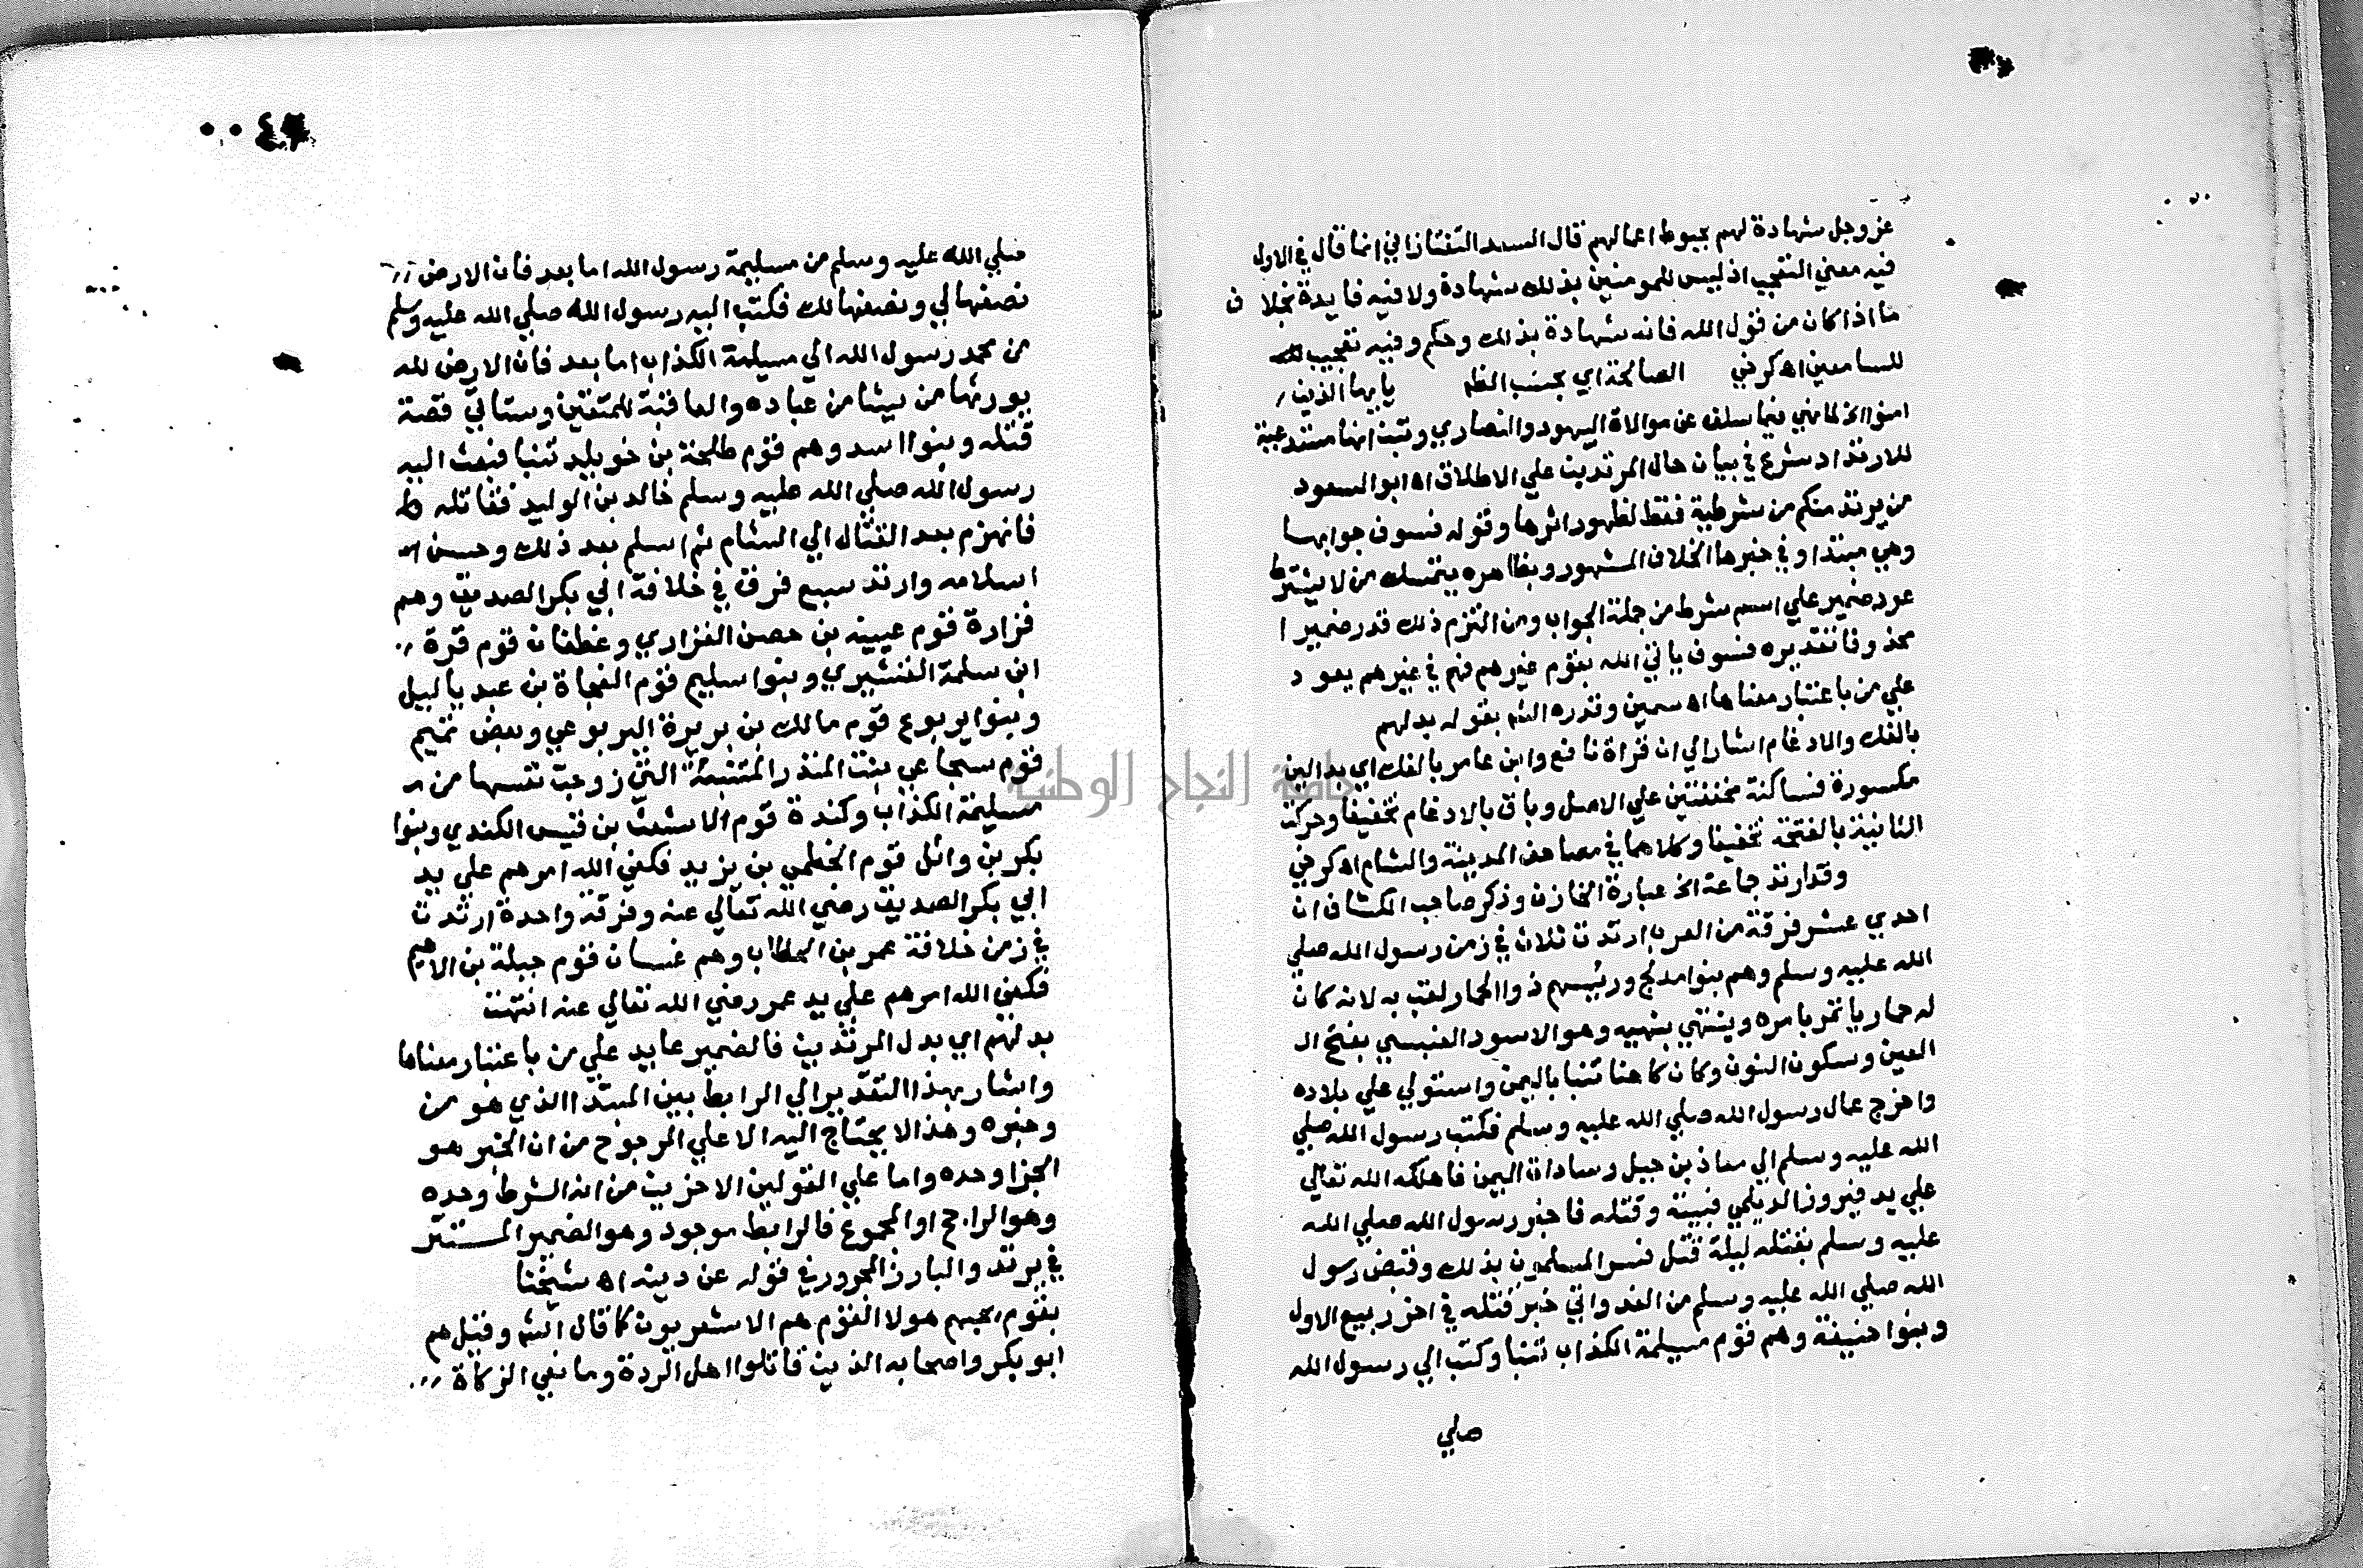 عز وجل شهادة لهم بحبوط اعمالهم قال السعد التفتازاني انما قال في الاول
فيه معني التعجب اذ ليس للمومنين بذلك شهادة ولا فيه فايدة بخلا ف
ما اذا كان من قول الله فانه شهادة بذلك وحكم وفيه تعجيب
للسامعين اه كرخي الصالحة اي بحسب الظا يا يها الذين
امنوا الخ لما نهي فيما سلف عن موالاة اليهود والنصاري وتبين انها مستدعية
للارتداد شرع في بيان حال المرتدين علي الاطلاق اه ابو السعود
من يرتد منكم من شرطية فقط لظهور اثرها وقوله فسوف جوابها
وهي مبتدا وفي خبرها الخلاف المشهور وبظاهره يتمسك من لا يشترط
عود ضمير علي اسم شرط من جملة الجواب ومن التزم ذلك قدر ضميرا
محذ وفا تقديره فسوف ياتي الله بقوم غيرهم فهم في غيرهم يعود
علي من باعتبار معناها اه سمين وقدره الش بقوله بدلهم
بالفك والادغام اشار الي ان قراة نافع وابن عامر بالفك اي بدالين
مكسورة فساكنة مخففتين علي الاصل وباق بالادغام تخفيفا وحركت
الثانية بالفتحة تخفيفا وكلاهما في مصاحف المدينة والشام اه كرخي
وقد ارتد جماعة الخ عبارة الخازن وذكر صاحب الكشاف ان
احدي عشر فرقة من العرب ارتدت ثلاث في زمن رسول الله صلي
الله عليه وسلم وهم بنوا مدلج ورئيسهم ذوا الحمار لقب به لانه كان
له حمار ياتمر بامره وينتهي بنهيه وهو الاسود العنسي بفتح ال
العين وسكون النون وكان كاهنا تنبا باليمن واستولي علي بلاده
واخرج عمال رسول الله صلي الله عليه وسلم فكتب رسول الله صلي
الله عليه وسلم الي معاذ بن جبل وسادات اليمن فاهلكه الله تعالي
علي يد فيروز الديلمي فبيته وقتله فاخبر رسول الله صلي الله
عليه وسلم بقتله ليلة قتل فسر المسلمون بذلك وقبض رسول
الله صلي الله عليه وسلم من الغد واتي خبر قتله في اخر ربيع الاول
وبنوا حنيفة وهم قوم مسيلمة الكذاب تنبا وكتب الي رسول الله
صلي
صلي الله عليه وسلم من مسليمة رسول الله اما بعد فان الارض
نصفها لي ونصفها لك فكتب اليه رسول الله صلي الله عليه وسلم
من محمد رسول الله الي مسيلمة الكذاب اما بعد فان الارض لله
يورثها من يشا من عباده والعاقبة للمتقين وستاتي قصة
قتله وبنوا اسد وهم قوم طلحة بن خويليد تنبا فبعث اليه
رسول الله صلي الله عليه وسلم خالد بن الوليد فقاتله
فانهزم بعد القتال الي الشام ثم اسلم بعد ذلك وحسن
اسلامه وارتد سبع فرق في خلافة ابي بكر الصديق وهم
فزارة قوم عيينه بن حصن الفزاري وغطفان قوم قرة
ابن سلمة القشيري وبنوا سليم قوم الفجاة بن عبد ياليل
وبنوا يربوع قوم مالك بن بريرة اليربوعي وبعض تميم
قوم سجاعي بنت المنذر المتنبئة التي زوجت نفسها من
مسليمة الكذاب وكندة قوم الاشعث بن قيس الكندي وبنوا
بكر بن وائل قوم الخطمي بن يزيد فكفي الله امرهم علي يد
ابي بكر الصديق رضي الله تعالي عنه وفرقة واحدة ارتدت
في زمن خلافة عمر بن الخطاب وهم غسان قوم جبلة بن الايهم
فكفي الله امرهم علي يد عمر رضي الله تعالي عنه انتهت
بدلهم اي بدل المرتدين فالضمير عايد علي من باعتبار معناها
واشار بهذا التقدير الي الرابط بين المبتدا الذي هو من
وخبره وهذا لا يحتاج اليه الا علي المرجوح من ان الخبر هو
الجزا وحده واما علي القولين الاخرين من انه الشرط وحده
وهو الراجح او المجموع فالرابط موجود وهو الضمير المستتر
في يرتد والبارز المجرور في قوله عن دينه اه شيخنا
بقوم يحبهم هولا القوم هم الاشعريون كما قال الش وقيل هم
ابو بكر واصحابه الذين قاتلوا اهل الردة ومانعي الزكاة
جامعة النجاح الوطنية